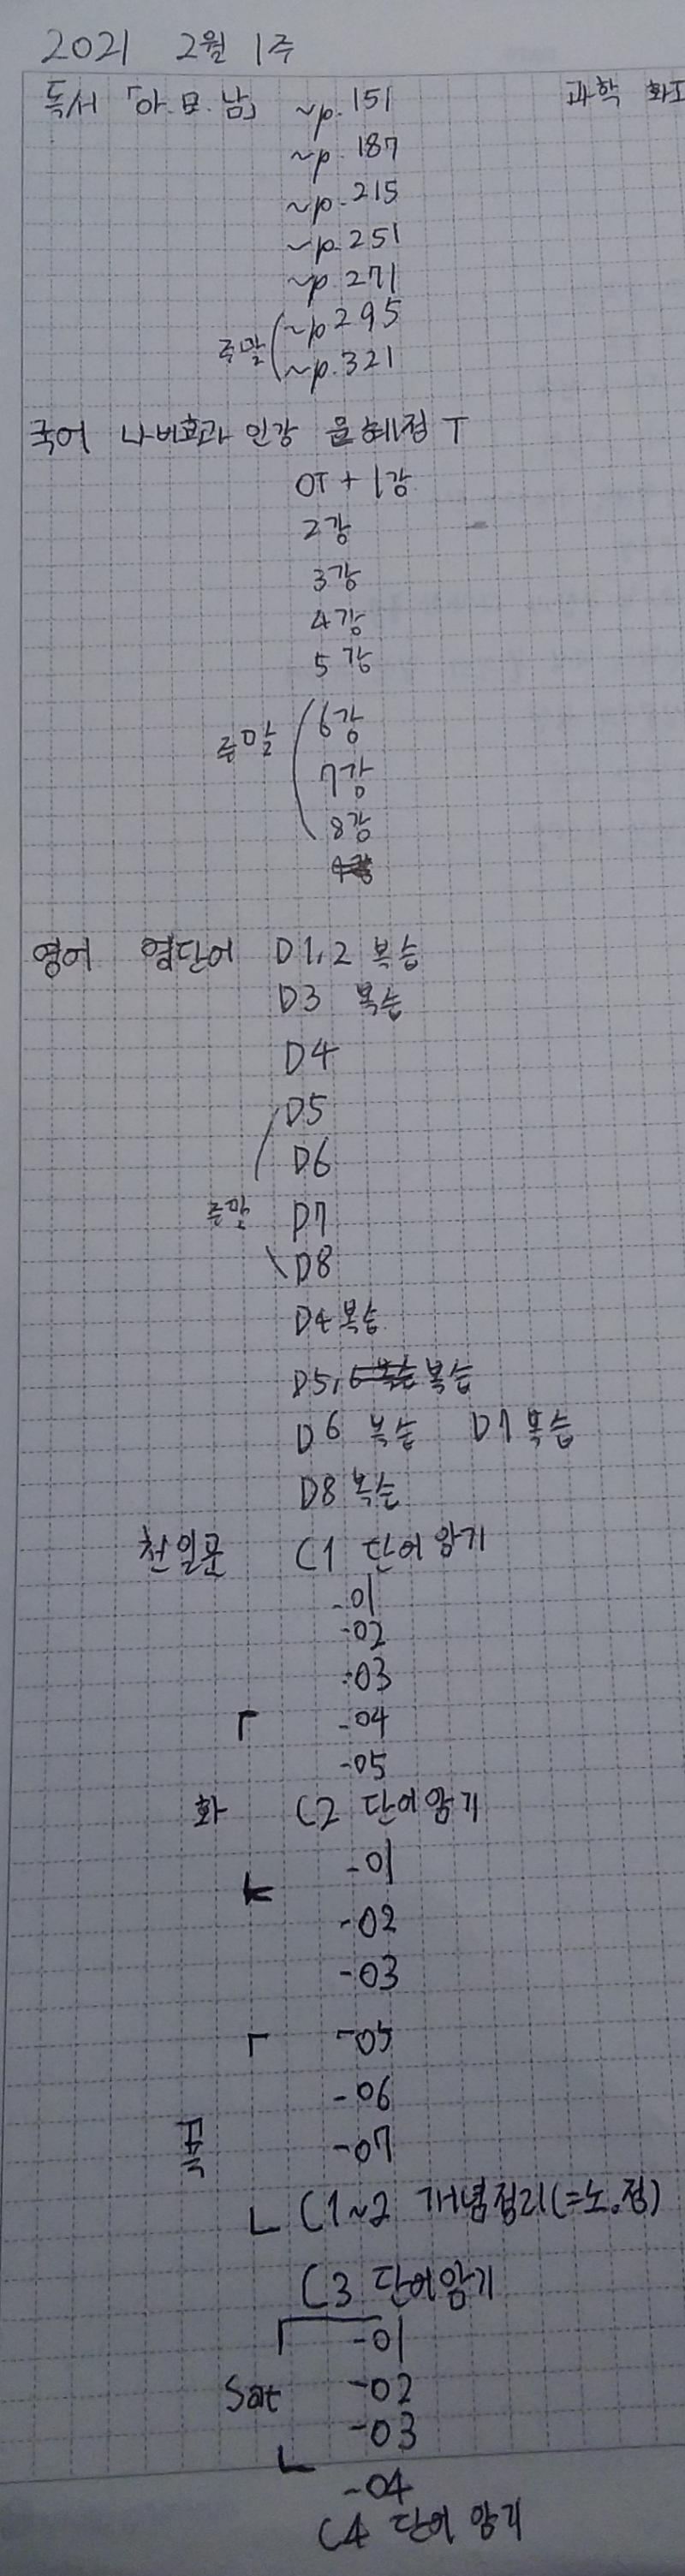 2021 2월 1주
독서 「아.모.남」 ~p.151 과학
~p.187
~p.215
~p.251
~p.271
주말 ~p.295
~p.321
국어 나비효과 인강 윤혜정 T
OT + 1강
2강
3강
4강
5강
주말 6강
7강
8강
영어 영단어 D1,2 복습
D3 복습
D4
D5
D6
주말 D7
D8
D4 복습
D5, 복습
D6 복습 D7 복습
D8 복습
천일문 C1 단어 암기
-01
-02
-03
-04
-05
화 C2 단어암기
-01
-02
-03
-05
-06
-07
C1~2 개념정리(=노.정)
C3 단어암기
-01
Sat -02
-03
-04
C4 단어 암기